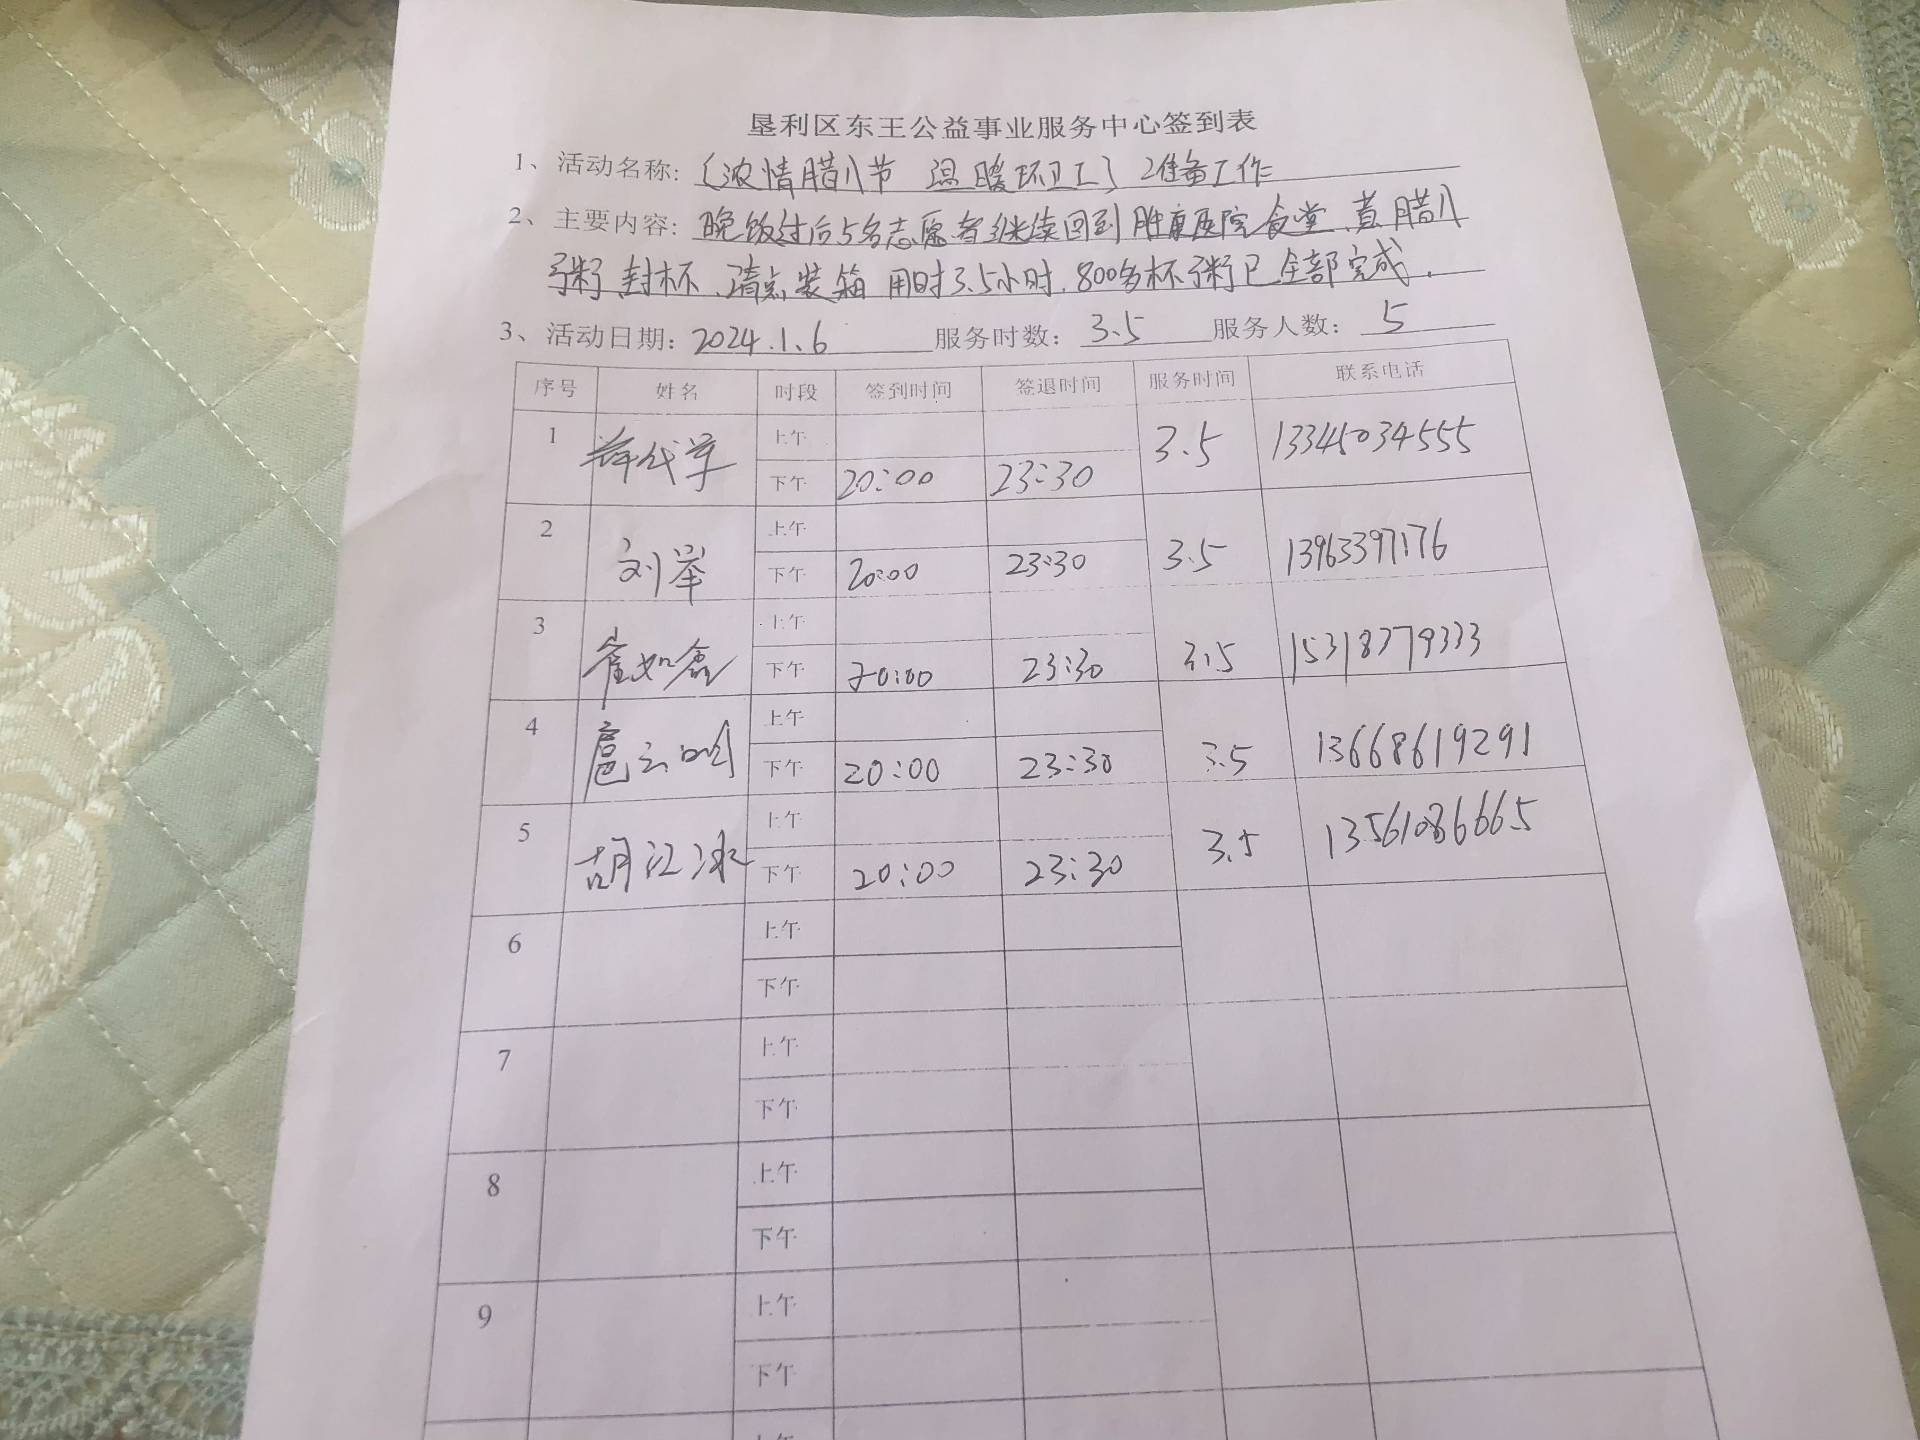 垦利区东王公益事业服务中心签到表
1、活动名称:〈浓情腊八节 温暖环卫工〉准备工作
2、主要内容:晚饭过后5名志愿者继续回到胜康医院食堂、煮腊八
粥、封杯、清点装箱 用时3.5小时.800多杯粥已全部完成.
3、活动日期: 2024.1.6 服务时数: 3.5 服务人数: 5
序号 姓名 时段 签到时间 签退时间 服务时间 联系电话
1 上午 3.5 13345034555
下午 20:00 23:30
2 刘举 上午 3.5 13963397176
下午 20:00 23:30
3 崔如鑫 上午 3.5 15318779333
下午 20:00 23:30
4 扈云明 上午 3.5 13668619291
下午 20:00 23:30
5 胡江冰 上午 3.5 13561086665
下午 20:00 23:30
6 上午
下午
7 上午
下午
8 上午
下午
9 上午
下午
上午